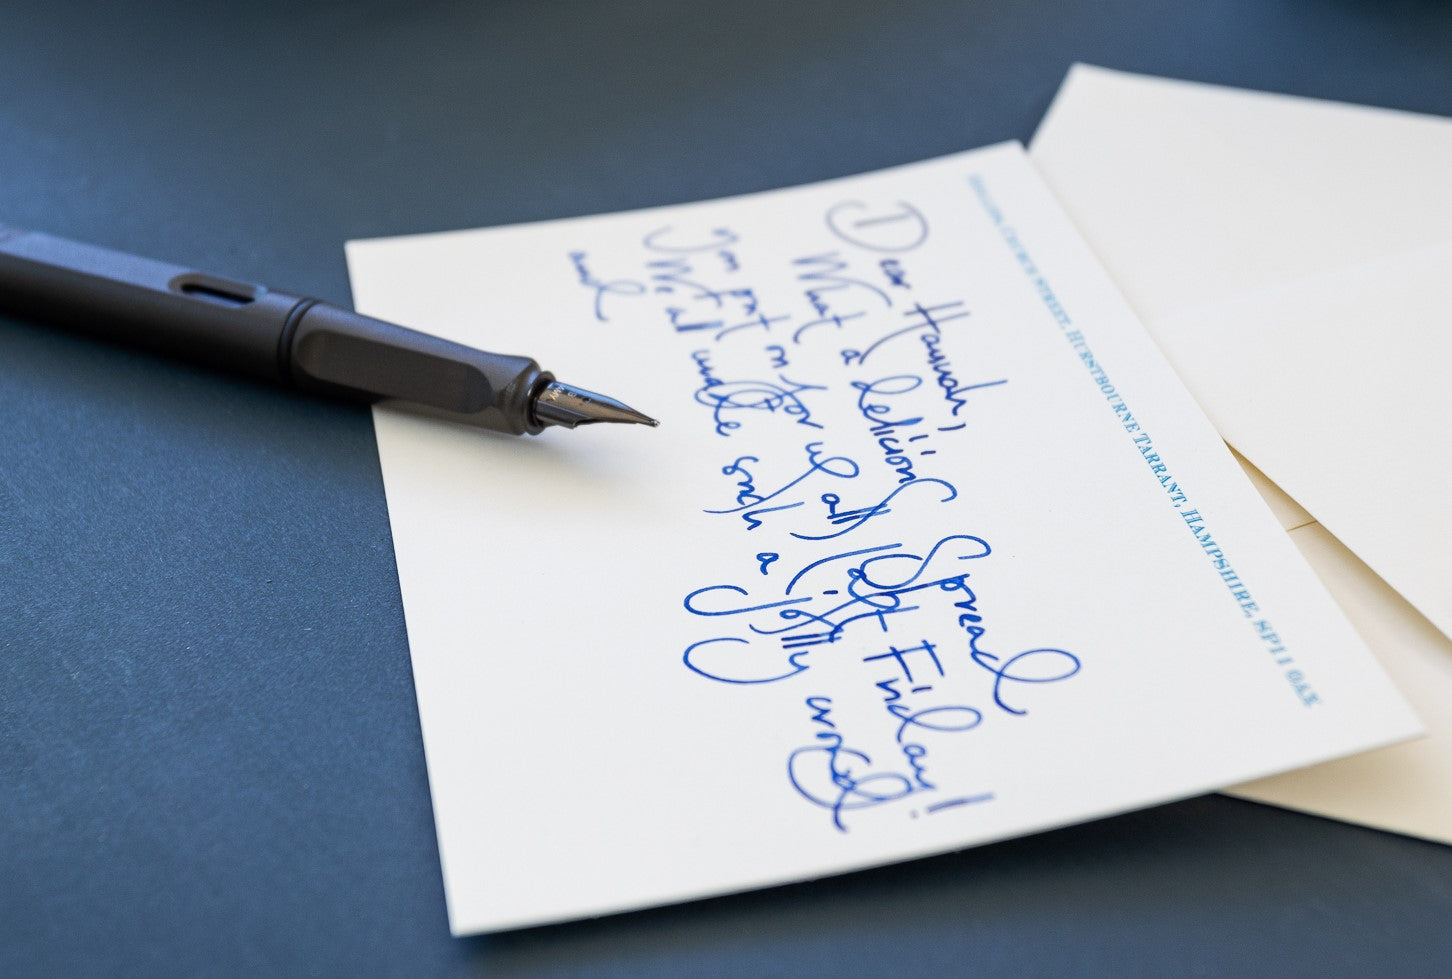 CHURCH STREET, HURSTBOURNE TARRANT, HAMPSHIRE, SP11 0AX
Dear Hannah,
What a delicious Spread
You put on for us all last Friday!
We all made such a jolly
and